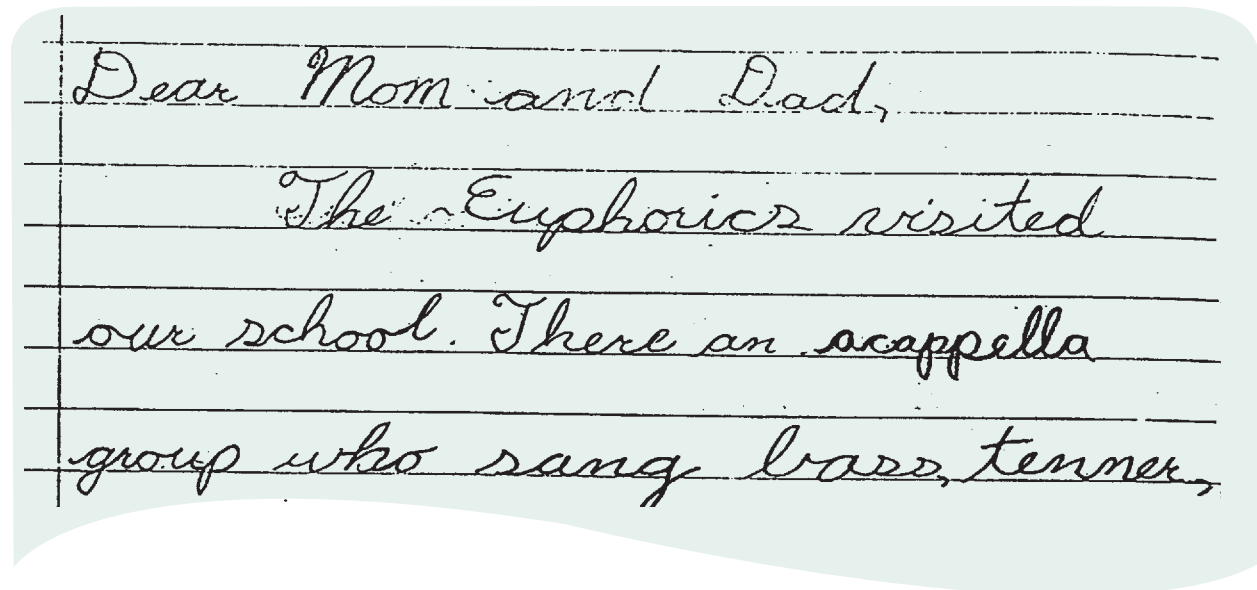 Dear Mom and Dad,
The Euphorics visited
our school. There an acappella
group who sang bass, tenner,